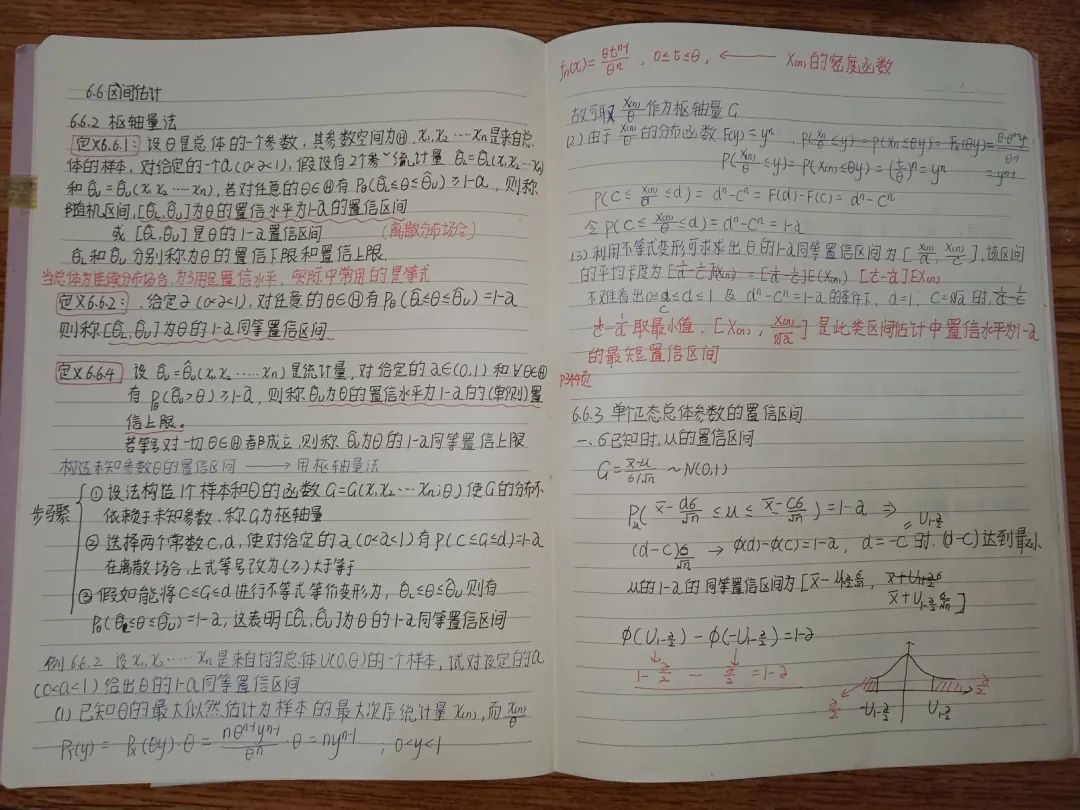 6.6 区间估计
6.6.2 枢轴量法
定义6.6.1: 设θ是总体的一个参数, 其参数空间为Θ, x₁,x₂…xₙ是来自总
体的样本, 对给定的一个α(0<α<1), 假设有2个统计量 θ̂L=θ̂L(x₁,x₂…xₙ)
和θ̂U=θ̂U(x₁,x₂…xₙ), 若对任意的θ∈Θ有 Pθ(θ̂L≤θ≤θ̂U)≥1-α, 则称
随机区间,[θ̂L,θ̂U]为θ的置信水平为1-α的置信区间
或 [θ̂L,θ̂U]是θ的1-α置信区间 (离散分布场合)
θ̂L和θ̂U分别称为θ的置信下限和置信上限.
当总体为连续分布场合,为了用足置信水平, 实际中常用的是等式
定义6.6.2: 给定α(0<α<1), 对任意的θ∈Θ有 Pθ(θ̂L≤θ≤θ̂U)=1-α
则称[θ̂L,θ̂U]为θ的1-α同等置信区间
定义6.6.4 设 θ̂U=θ̂U(x₁,x₂……xₙ)是统计量, 对给定的α∈(0,1)和∀θ∈Θ
有 Pθ(θ̂U>θ)≥1-α, 则称θ̂U为θ的置信水平为1-α的(单侧)置
信上限。
若等号对一切θ∈Θ都成立,则称θ̂U为θ的1-α同等置信上限
构造未知参数θ的置信区间 ⟶ 用枢轴量法
步骤
① 设法构造1个样本和θ的函数 G=G(x₁,x₂…xₙ;θ)使G的分布不
依赖于未知参数, 称G为枢轴量
② 选择两个常数c,d, 使对给定的α(0<α<1)有P(c≤G≤d)=1-α
在离散场合,上式等号改为(≥)大于等于
③ 假如能将c≤G≤d进行不等式等价变形为, θ̂L≤θ≤θ̂U则有
Pθ(θ̂L≤θ≤θ̂U)=1-α, 这表明[θ̂L,θ̂U]为θ的1-α同等置信区间
例6.6.2 设x₁,x₂……xₙ是来自均匀总体U(0,θ)的一个样本, 试对设定的α
(0<α<1)给出θ的1-α同等置信区间
(1) 已知θ的最大似然估计为样本的最大次序统计量x(n), 而x(n)/θ
Pᵧ(y)= Pₓ(θy)·θ = nθⁿ⁻¹yⁿ⁻¹/θⁿ ·θ = nyⁿ⁻¹ , 0<y<1
fn(x)= θtⁿ⁻¹/θⁿ, 0≤t≤θ, ⟵ X(n)的密度函数
故可取 X(n)/θ 作为枢轴量G
(2) 由于 X(n)/θ 的分布函数 F(y)=yⁿ,
P(X(n)/θ≤y)=P(X(n)≤θy)=(t/θ)ⁿ=yⁿ
P(c≤ X(n)/θ ≤d)= dⁿ-cⁿ=F(d)-F(c)= dⁿ-cⁿ
令 P(c≤ X(n)/θ ≤d)= dⁿ-cⁿ=1-α
(3) 利用不等式变形可求出θ的1-α同等置信区间为[X(n)/d, X(n)/c], 该区间
的平均长度为 [1/c-1/d]EX(n)
不难看出0≤c≤d≤1 及 dⁿ-cⁿ=1-α的条件下, d=1, c=ⁿ√α时,
1/c-1/d 取最小值, [X(n), X(n)/ⁿ√α] 是此类区间估计中置信水平为1-α
的最短置信区间
P344页
6.6.3 单个正态总体参数的置信区间
一、σ已知时, μ的置信区间
G= (x̄-μ)/(σ/√n) ~N(0,1)
Pμ( x̄- dσ/√n ≤μ≤ x̄- cσ/√n )=1-α ⇒
(d-c)σ/√n → Φ(d)-Φ(c)=1-α, d=-c=U₁₋α/2时.(d-c)达到最小
μ的1-α的同等置信区间为[x̄-U₁₋α/2 σ/√n, x̄+U₁₋α/2 σ/√n]
Φ(U₁₋α/2)-Φ(-U₁₋α/2)=1-α
1-α/2 - α/2 =1-α
α/2 -U₁₋α/2 U₁₋α/2 α/2